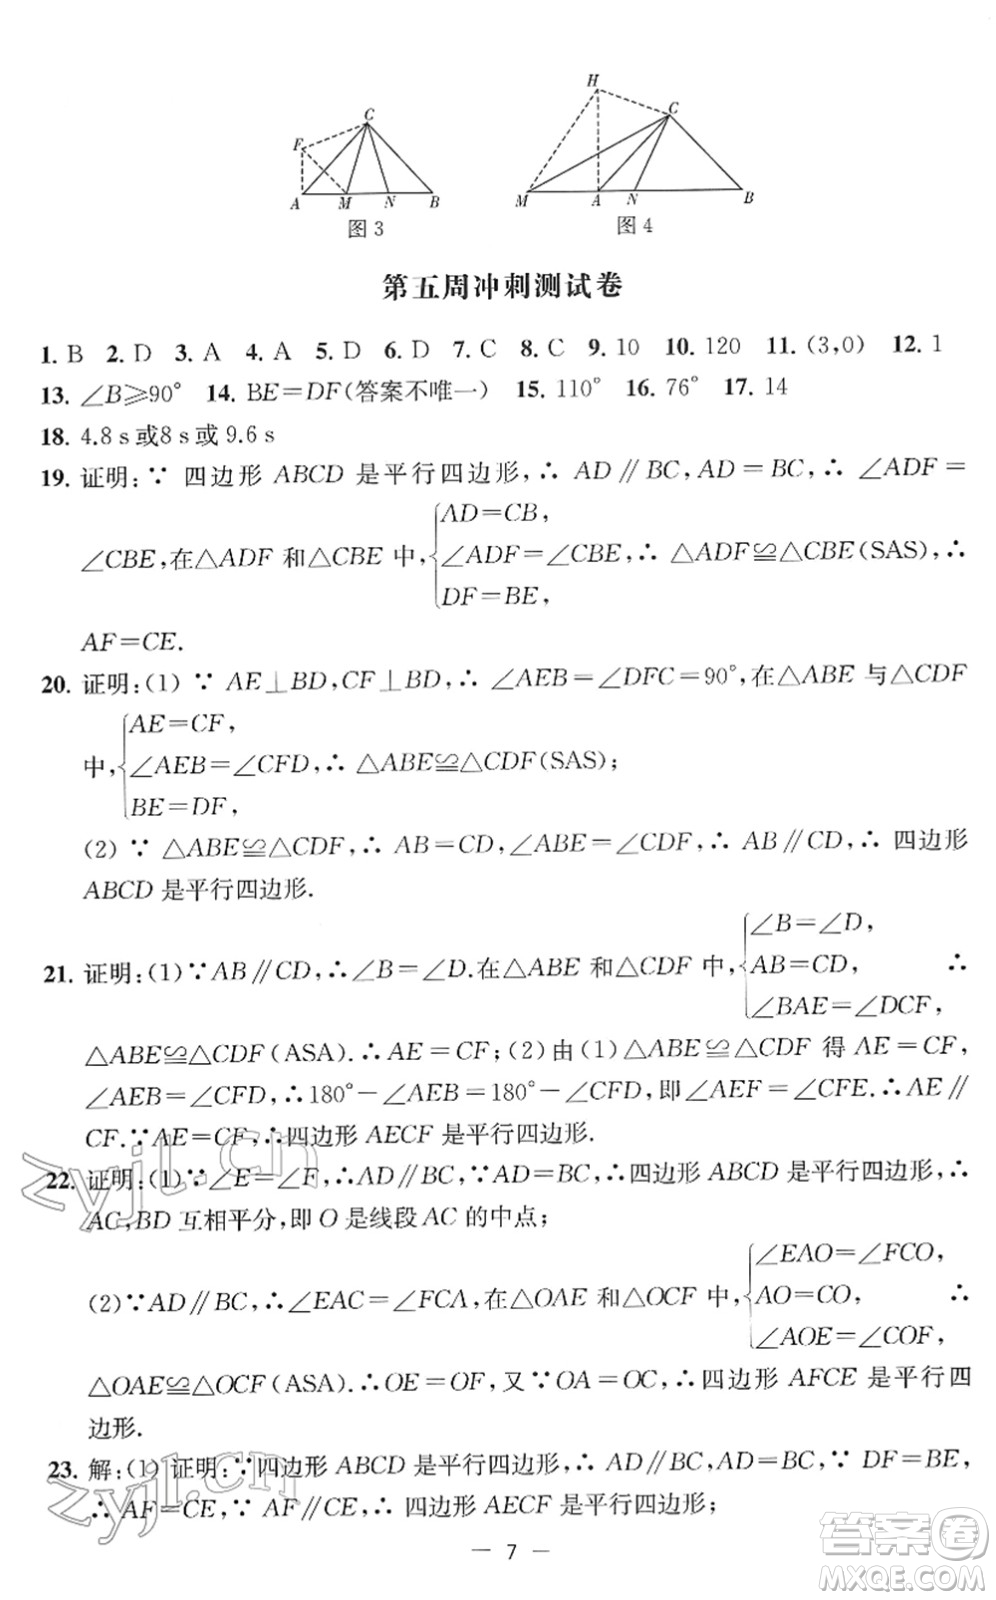 H
C
F
C
A M N B
M A N B
图 3
图 4
第五周冲刺测试卷
1. B 2. D 3. A 4. A 5. D 6. D 7. C 8. C 9. 10 10. 120 11. (3,0) 12. 1
13. ∠B≥90° 14. BE=DF(答案不唯一) 15. 110° 16. 76° 17. 14
18. 4.8 s或8 s或 9.6 s
19. 证明:∵ 四边形 ABCD 是平行四边形,∴ AD∥BC,AD=BC,∴ ∠ADF=
AD=CB,
∠CBE,在△ADF 和△CBE 中,{∠ADF=∠CBE,∴ △ADF≌△CBE(SAS),∴
DF=BE,
AF=CE.
20. 证明:(1) ∵ AE⊥BD,CF⊥BD,∴ ∠AEB=∠DFC=90°,在△ABE 与△CDF
AE=CF,
中,{∠AEB=∠CFD,∴ △ABE≌△CDF(SAS);
BE=DF,
(2) ∵ △ABE≌△CDF,∴ AB=CD,∠ABE=∠CDF,∴ AB∥CD,∴ 四边形
ABCD 是平行四边形.
∠B=∠D,
21. 证明:(1)∵AB∥CD,∴∠B=∠D.在△ABE 和△CDF 中,{AB=CD, ∴
∠BAE=∠DCF,
△ABE≌△CDF(ASA).∴AE=CF;(2)由(1)△ABE≌△CDF 得 AE=CF,
∠AEB=∠CFD,∴180°−∠AEB=180°−∠CFD,即∠AEF=∠CFE.∴AE∥
CF.∵AE=CF,∴四边形 AECF 是平行四边形.
22. 证明:(1)∵∠E=∠F,∴AD∥BC,∵AD=BC,∴四边形 ABCD 是平行四边形,∴
AC,BD 互相平分,即 O 是线段 AC 的中点;
∠EAO=∠FCO,
(2)∵AD∥BC,∴∠EAC=∠FCA,在△OAE 和△OCF 中,{AO=CO, ∴
∠AOE=∠COF,
△OAE≌△OCF(ASA).∴OE=OF,又∵OA=OC,∴四边形 AFCE 是平行四
边形.
23. 解:(1) 证明:∵四边形 ABCD 是平行四边形,∴ AD∥BC,AD=BC,∵ DF=BE,
∴ AF=CE,∵ AF∥CE,∴ 四边形 AECF 是平行四边形;
— 7 —
zyjl.cn
zyjl.cn
答案卷
MXQE.COM